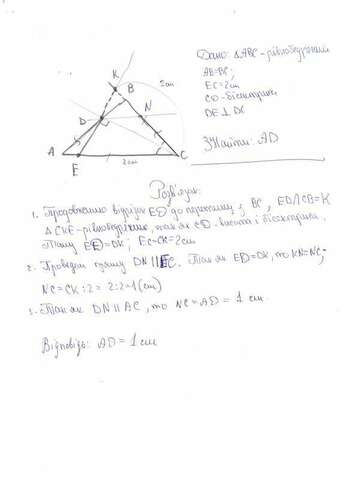 Дано: △ABC - рівнобедрений
AB=BC;
EC=2см
CD-бісектриса
DE⊥DC
Знайти: AD
K
B
2см
D
N
A
E
2см
C
Розв'язок:
1. Продовжимо відрізок ED до перетину з BC, ED∩CB=K
△CKE-рівнобедрений, так як CD-висота і бісектриса.
Тому ED=DK; EC=CK=2см
2. Проведем пряму DN||EC. Так як ED=DK, то KN=NC;
NC=CK:2=2:2=1(см)
3. Так як DN||AC, то NC=AD=1см.
Відповідь: AD=1см